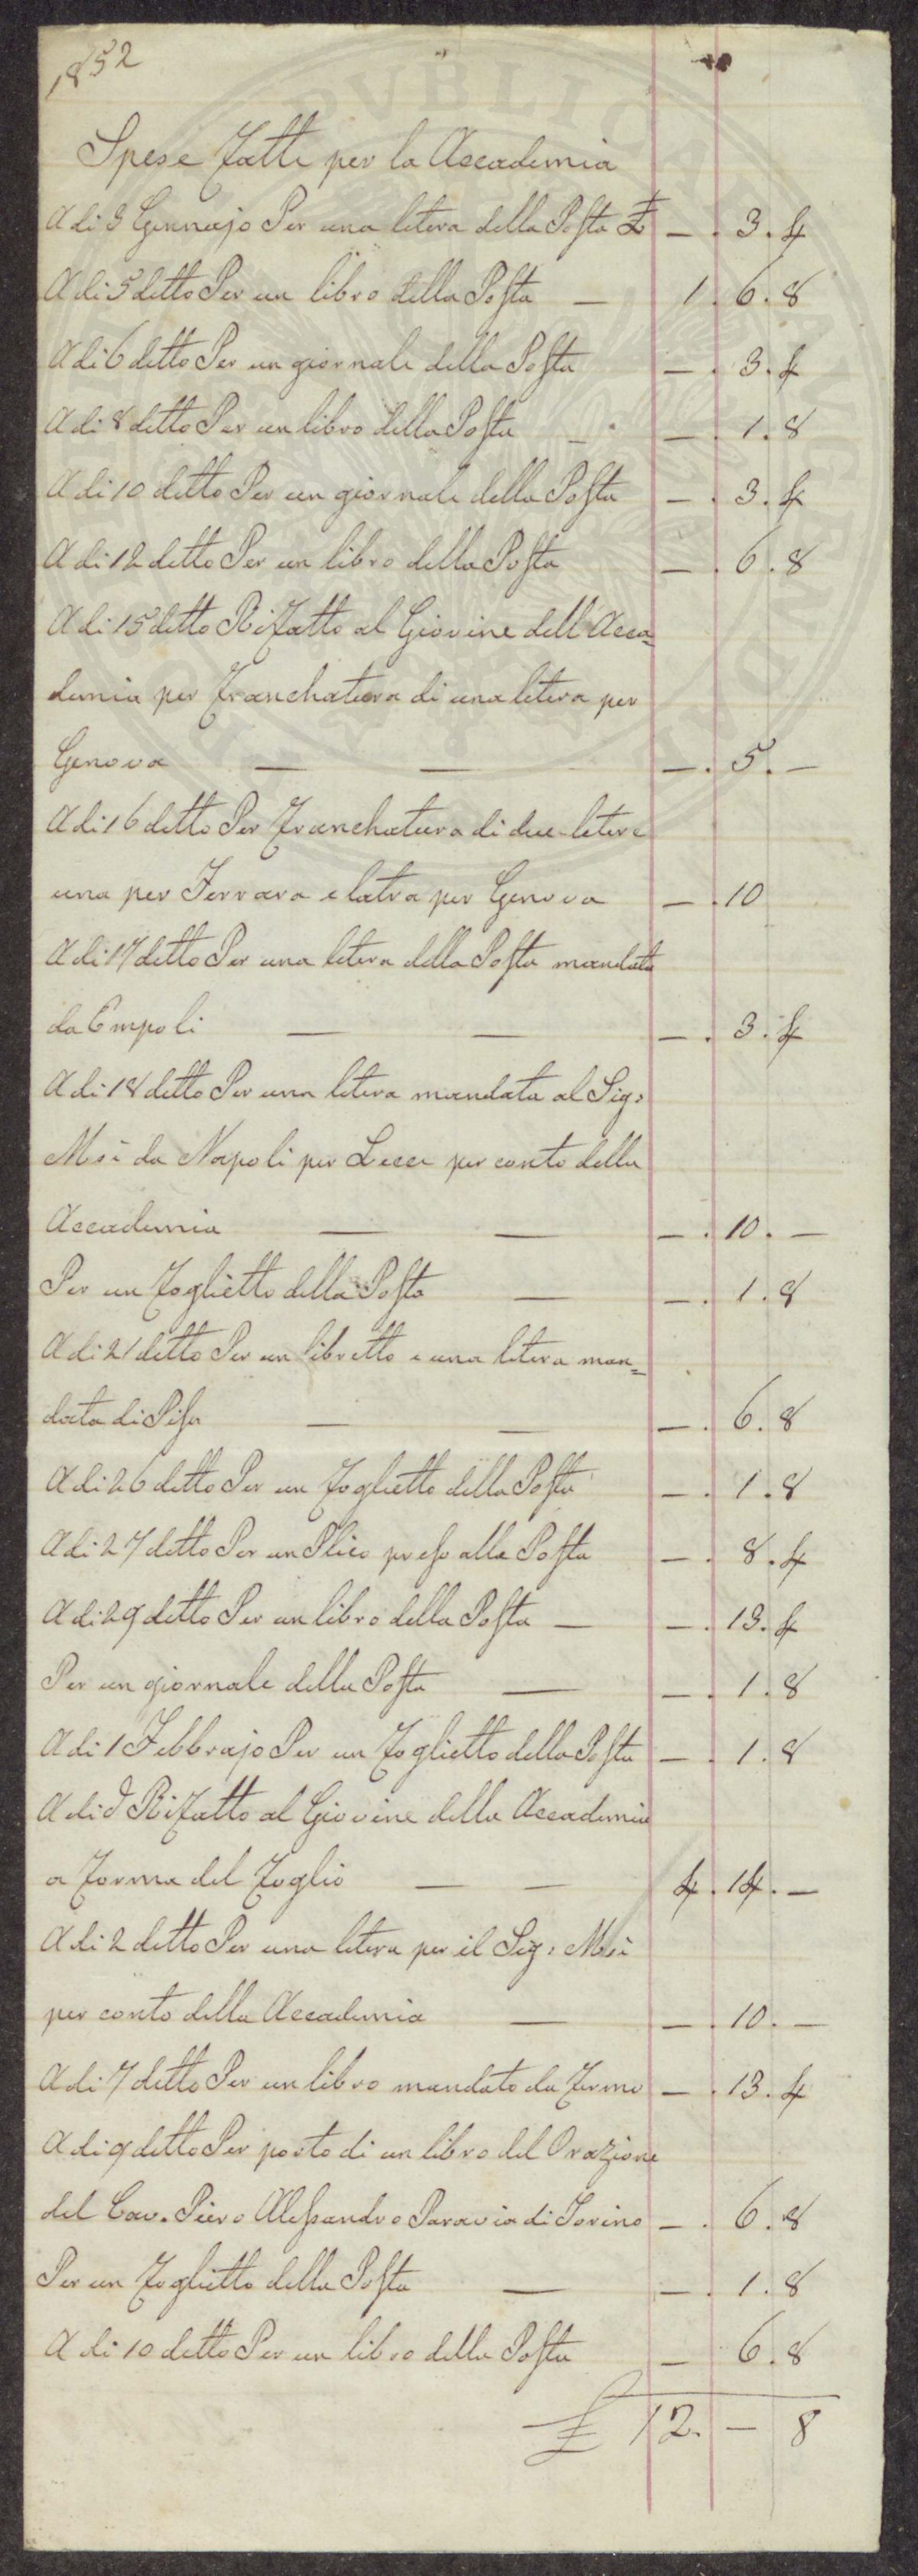 1852
Spese fatte per la Accademia
A di 3 Gennajo Per una letera della Posta £ — . 3 . 4
A di 5 detto Per un libro della Posta — 1 . 6 . 8
A di 6 detto Per un giornale della Posta — . 3 . 4
A di 8 detto Per un libro della Posta — — . 1 . 8
A di 10 detto Per un giornale della Posta — . 3 . 4
A di 12 detto Per un libro della Posta — . 6 . 8
A di 15 detto Rifatto al Giovine dell Acca=
demia per franchatura di una letera per
Genova — — — . 5 . —
A di 16 detto Per franchatura di due letere
una per Ferrara e latra per Genova — . 10
A di 17 detto Per una letera della Posta mandata
da Empoli — — — . 3 . 4
A di 18 detto Per una letera mandata al Sig:
Moi da Napoli per Lecce per conto della
Accademia — — — . 10 . —
Per un foglietto della Posta — — . 1 . 8
A di 21 detto Per un libretto e una letera man=
data di Pisa — — — . 6 . 8
A di 26 detto Per un foglietto della Posta — . 1 . 8
A di 27 detto Per un Plico preso alla Posta — . 8 . 4
A di 29 detto Per un libro della Posta — — . 13 . 4
Per un giornale della Posta — — . 1 . 8
A di 1 Febbrajo Per un foglietto della Posta — . 1 . 8
A di d Rifatto al Giovine della Accademia
a forma del foglio — — 4 . 14 . —
A di 2 detto Per una letera per il Sig: Moi
per conto della Accademia — — . 10 . —
A di 7 detto Per un libro mandato da Fermo — . 13 . 4
A di 9 detto Per porto di un libro del Orazione
del Cav. Piero Alessandro Paravia di Torino — . 6 . 8
Per un foglietto della Posta — — . 1 . 8
A di 10 detto Per un libro della Posta — 6 . 8
£ 12. — 8